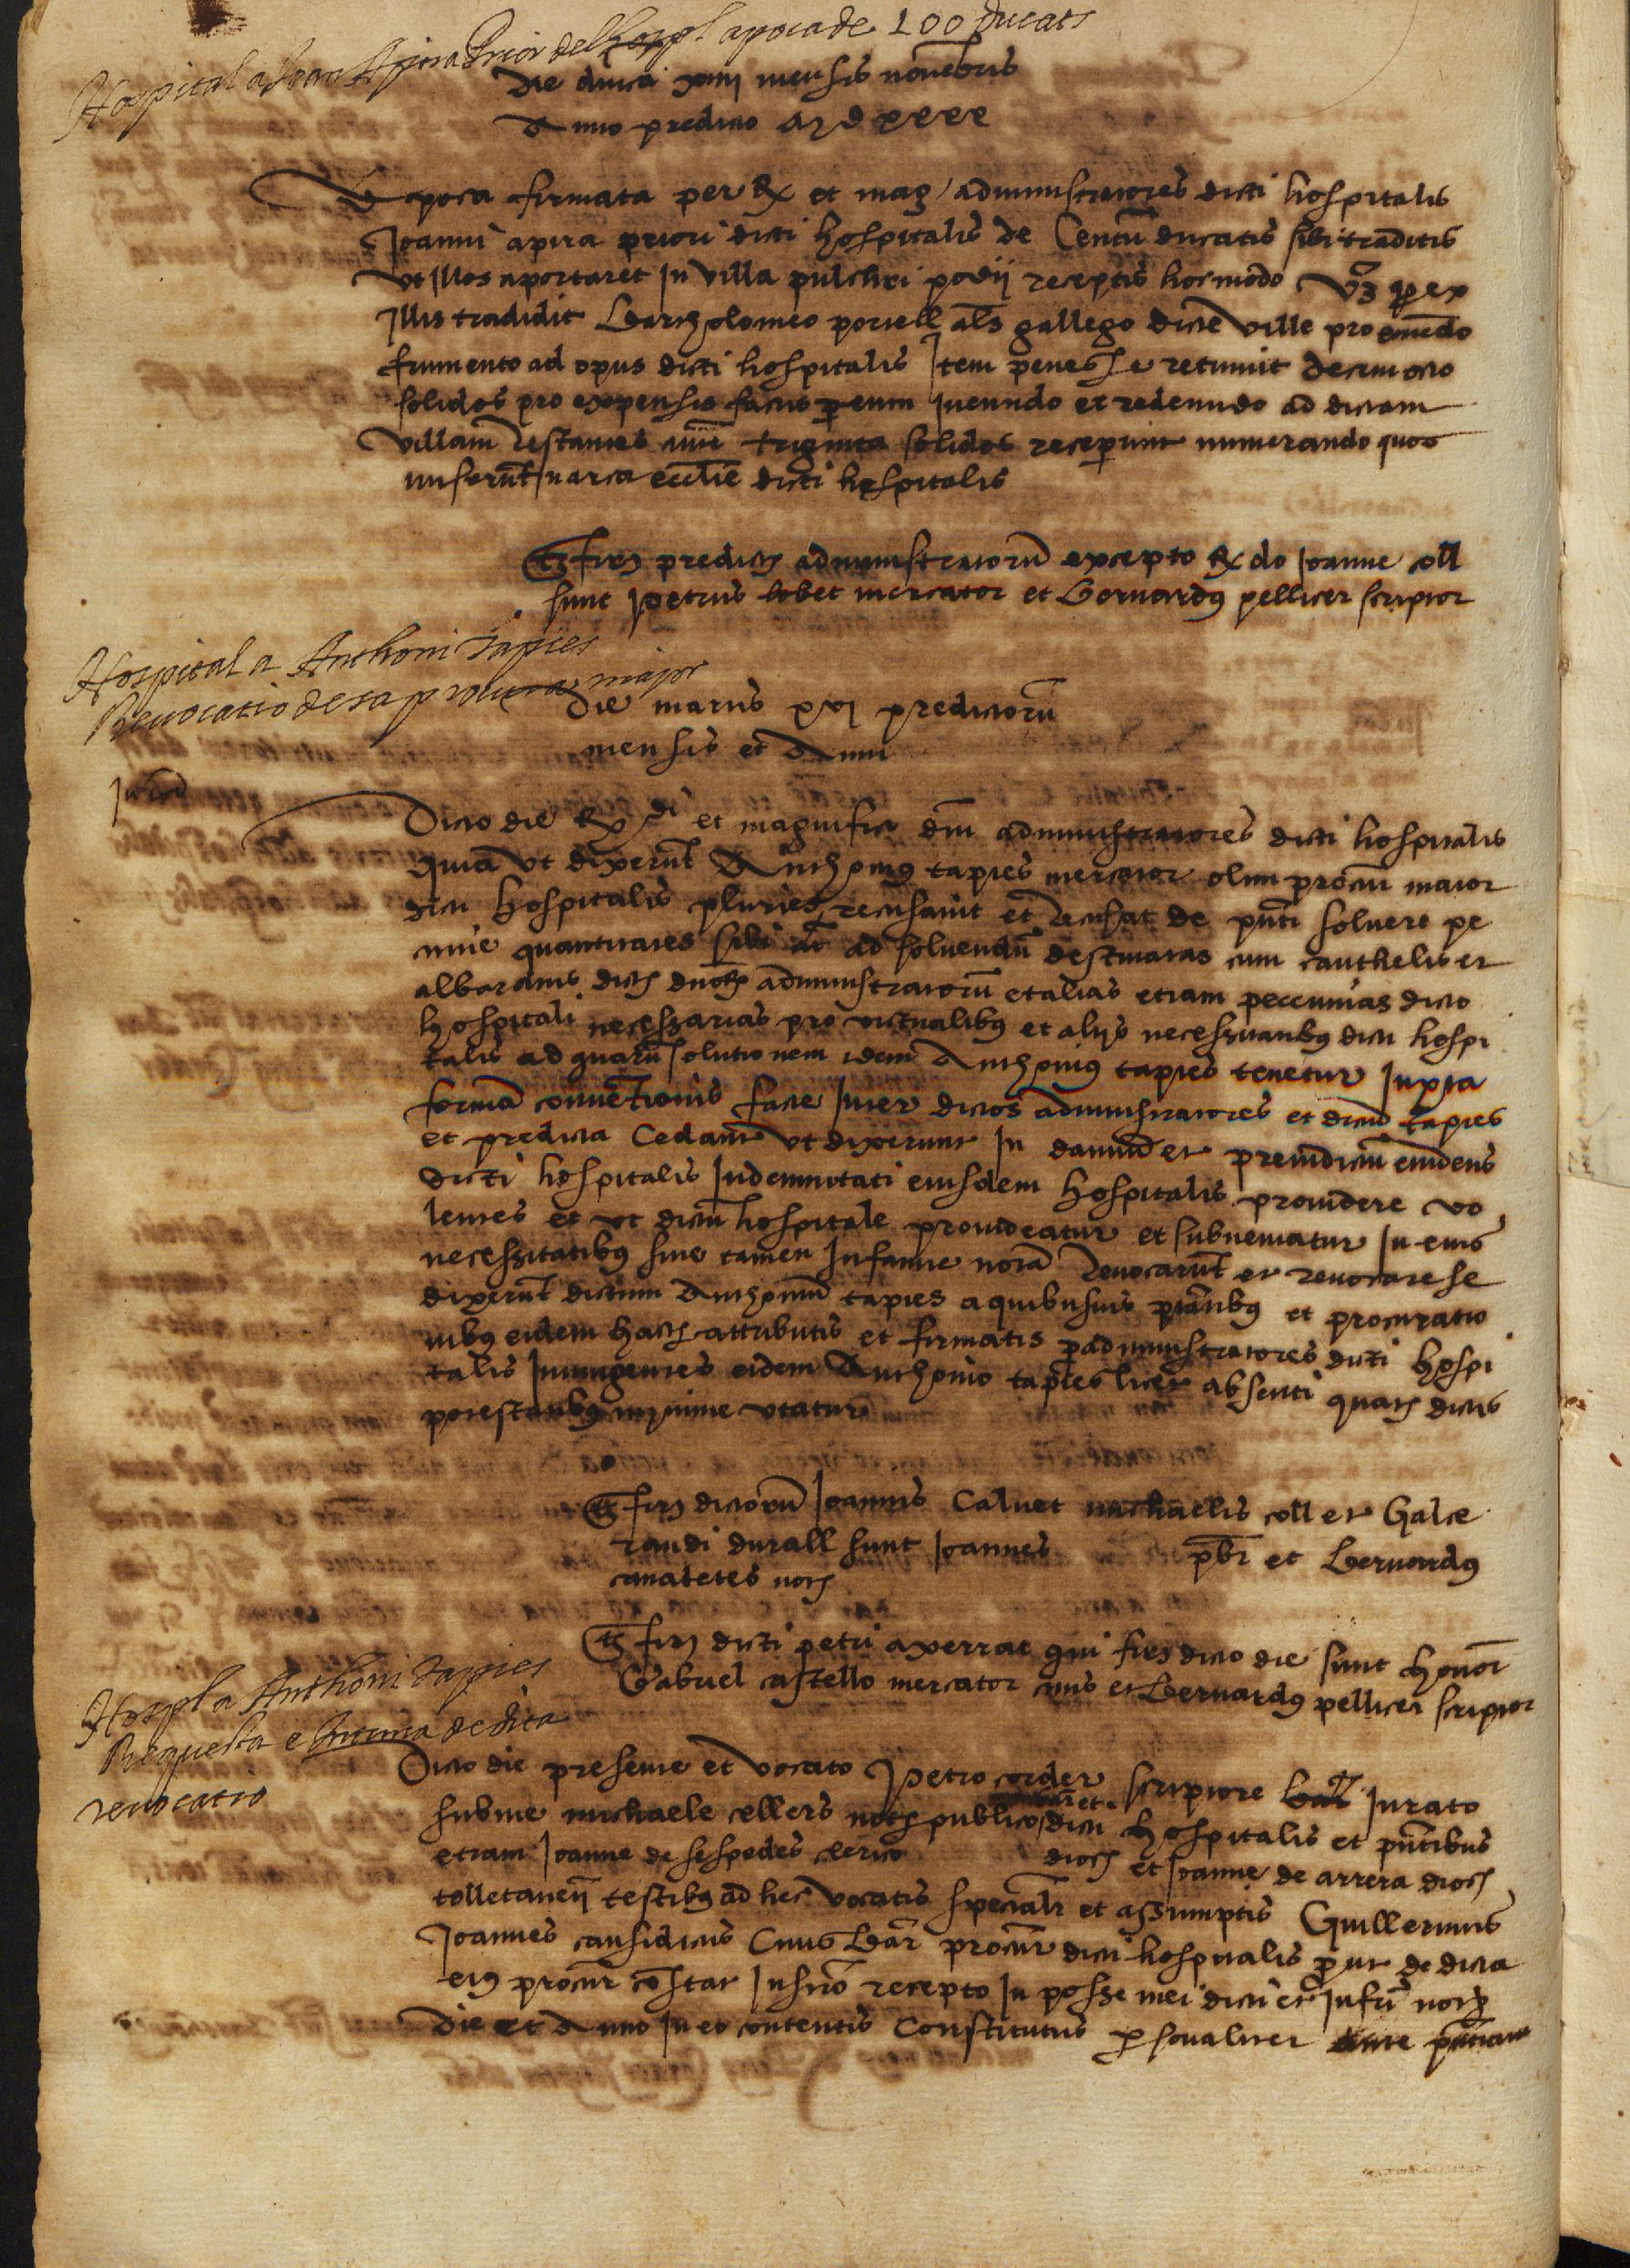 Hospital a Joan Apira Prior del Hospl apoca de 100 ducats
Die dnica xiiij mensis nouebris
Anno predicto M D xxxx
Apoca firmata per Rx et mag administratores dicti hospitalis
Joanni apira priori dicti hospitalis de Centu ducatis sibi traditis
vt Illos aportaret In villa pulchri podij receptis hoc modo vz ex
Illis tradidit Bartholomeo poriell als gallego dicte ville pro emedo
frumento ad opus dicti hospitalis Item penes se retinuit decim octo
solidos pro expensis factis p eum Ineundo et redeundo ad dictam
villam Restantes triginta solidos receperunt numerando quos
In arca ecclie dicti hospitalis
Ts firm predictor administratoru excepto Rx do Joanne coll
sunt petrus lobet mercator et Bernardus pellicer scriptor
Hospital a Anthoni Tapies
Reuocatio de sa procura major
Die martis xvi predictoru
mensis et Anni
Dicto die Rx di et magnifici dni administratores dicti hospitalis
quia vt dixerut Anthonius tapies mercator olim procur maior
dicti hospitalis pluries recusauit et Recusat de pnti soluere pe
cunie quantitates sibi ad soluendu destinatas cum cauthelis et
albaranis dictor dnor administratoru et alias etiam peccunias dicto
hospitali necessarias pro victualibus et alijs necessitatibus dicti hospi
talis ad quaru solutionem idem Anthonius tapies tenetur Juxta
forma conuetionis facte Inter dictos administratores et dictu tapies
et predicta Cedant vt dixerunt In dannu et preiudiciu euidens
dicti hospitalis Indemnitati eiusdem hospitalis prouidere vo
lentes et vt dictu hospitale prouideatur et subueniatur In eius
necessitatibus sine tamen Infamie nota Reuocarut et reuocare se
dixerut dictum Anthoniu tapies a quibusuis ptatibus et procuratio
nibus eidem hacts attributis et firmatis p administratores dicti hospi
talis Iniungentes eidem Anthonio tapies licet absenti quats dictis
potestatibus minime vtatur
Ts firm dictoru Joannis Caluet michaelis coll et Galce
randi durall sunt Joannes pbr et Bernardus
canaletes nots
Ts firm dicti petri axerrat qui fies dicto die sunt honor
Gabriel castello mercator ciuis et Bernardus pellicer scriptor
Hospl a Anthoni Tappies
Requesta e Intima de dita
reuocatio
Dicto die presente et vocato Petro corder scriptore Jurato
sub me michaele cellers not publico dicti hospitalis et pntibus
etiam Joanne de sespedes clerico diocs et Joanne de arrera diocs
tolletaneñ testibus ad hec vocatis specialr et assumptis Guillermus
Joannes causidicus Ciuis Bar procur dicti hospitalis put de dicta
eius procur costat Instro recepto In posse mei dicti et Infri notr
die et Anno In eo contentis Constitutus psonaliter ante pntiam